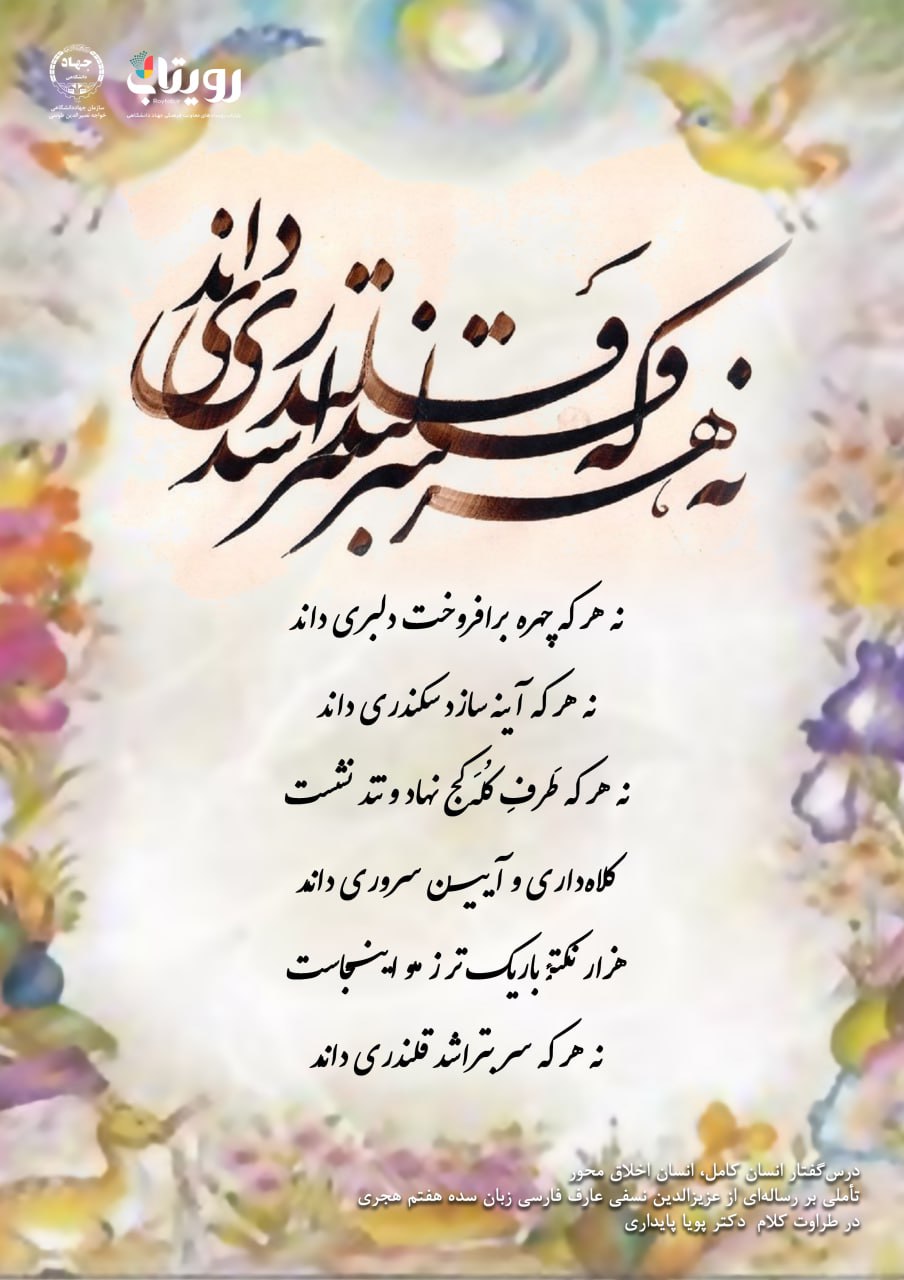 رویتاب
Roytab.ir
جهاد
دانشگاهی
سازمان جهاددانشگاهی
خواجه نصیرالدین طوسی
نه هر که سر بتراشد قلندری داند
نه هر که چهره برافروخت دلبری داند
نه هر که آینه سازد سکندری داند
نه هر که طَرفِ کُلَه کج نهاد و تند نشست
کلاه‌داری و آیین سروری داند
هزار نکتهٔ باریک‌تر ز مو اینجاست
نه هر که سر بتراشد قلندری داند
درس‌گفتار انسان کامل، انسان اخلاق محور
تأملی بر رساله‌ای از عزیزالدین نسفی عارف فارسی زبان سده هفتم هجری
در طراوت کلام دکتر پویا پایداری